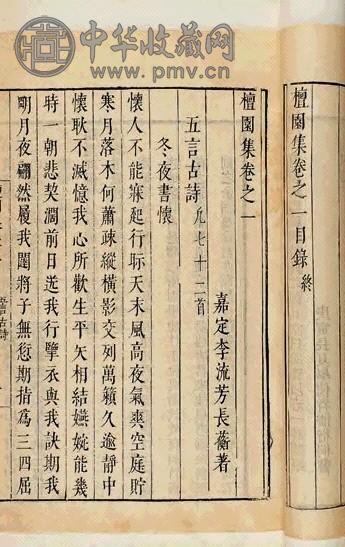 中华收藏网
www.pmv.cn
檀園集卷之一目錄 終
檀園集卷之一
嘉定李流芳長蘅著
五言古詩 凡七十二首
冬夜書懷
懷人不能寐起行眎天末風高夜氣爽空庭貯
寒月落木何蕭疎縱橫影交列萬籟久逾靜中
懷耿不滅憶我心所歡生平矢相結嬿婉能幾
時一朝悲契濶前日送我行掔衣與我訣期我
朙月夜翩然履我闥將子無愆期指為三四屈
五言古詩